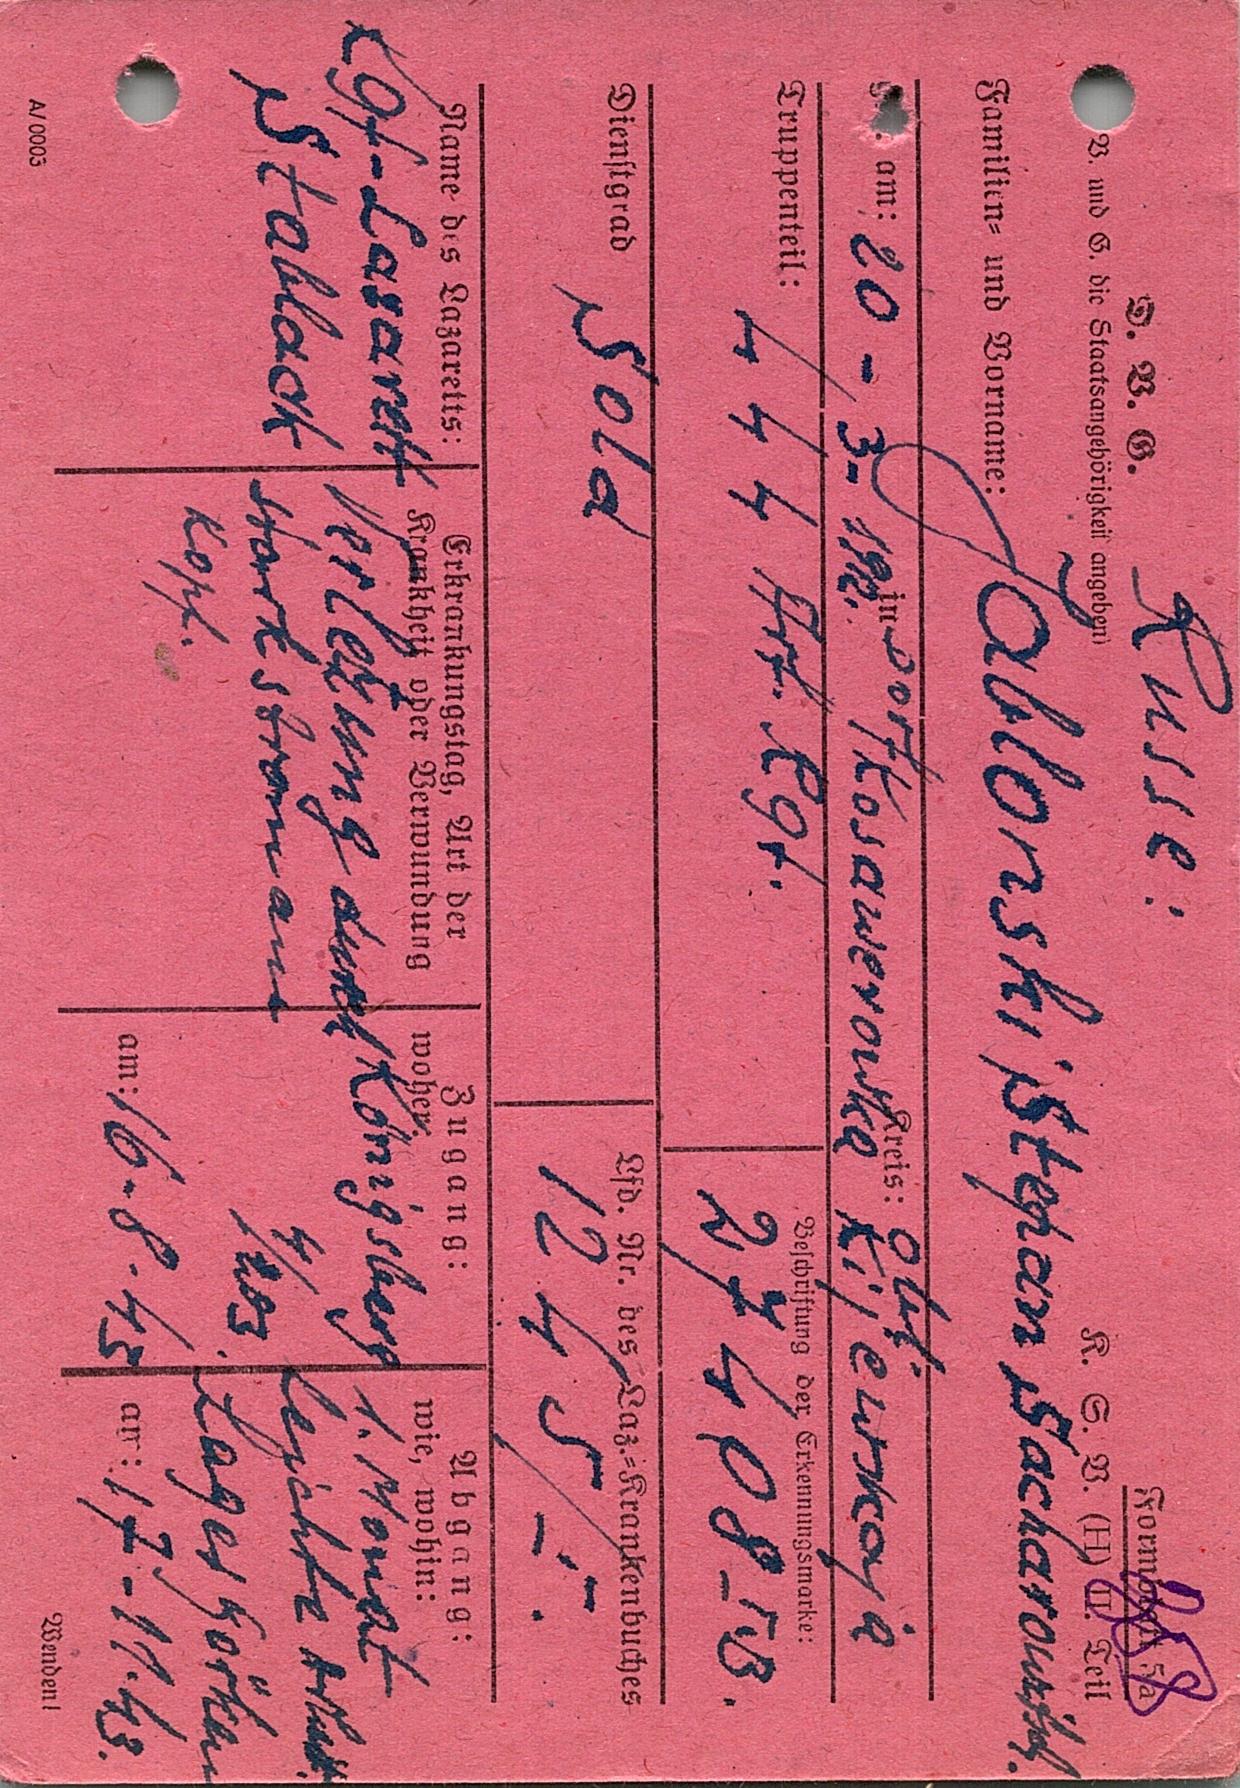 Russe:
D. V. G.
Formblatt 5a
(V. und G. die Staatsangehörigkeit angeben)
K. S. V. (H) II. Teil
Familien= und Vorname: Jablonski, Stephan Sacharowitsch.
am: 20-3-1912. in Dorf Kosawerowka Kreis: Obl. Kijewskaja
Truppenteil: 444 Art. Rgt.
Beschriftung der Erkennungsmarke: 27408 - I B.
Dienstgrad Sold
Lfd. Nr. des Laz.=Krankenbuches 1245/-"-.
Name des Lazaretts:
Kgf-Lasarett
Stablack
Erkrankungstag, Art der
Krankheit oder Verwundung
Verletzung durch
Starkstrom am
Kopf.
Zugang:
woher:
Königsberg
am: 16-8-43
Abgang:
wie, wohin:
1. Monat
leichte Arbeit
Lager Görken
am: 17-11-43.
A/0003
Wenden!